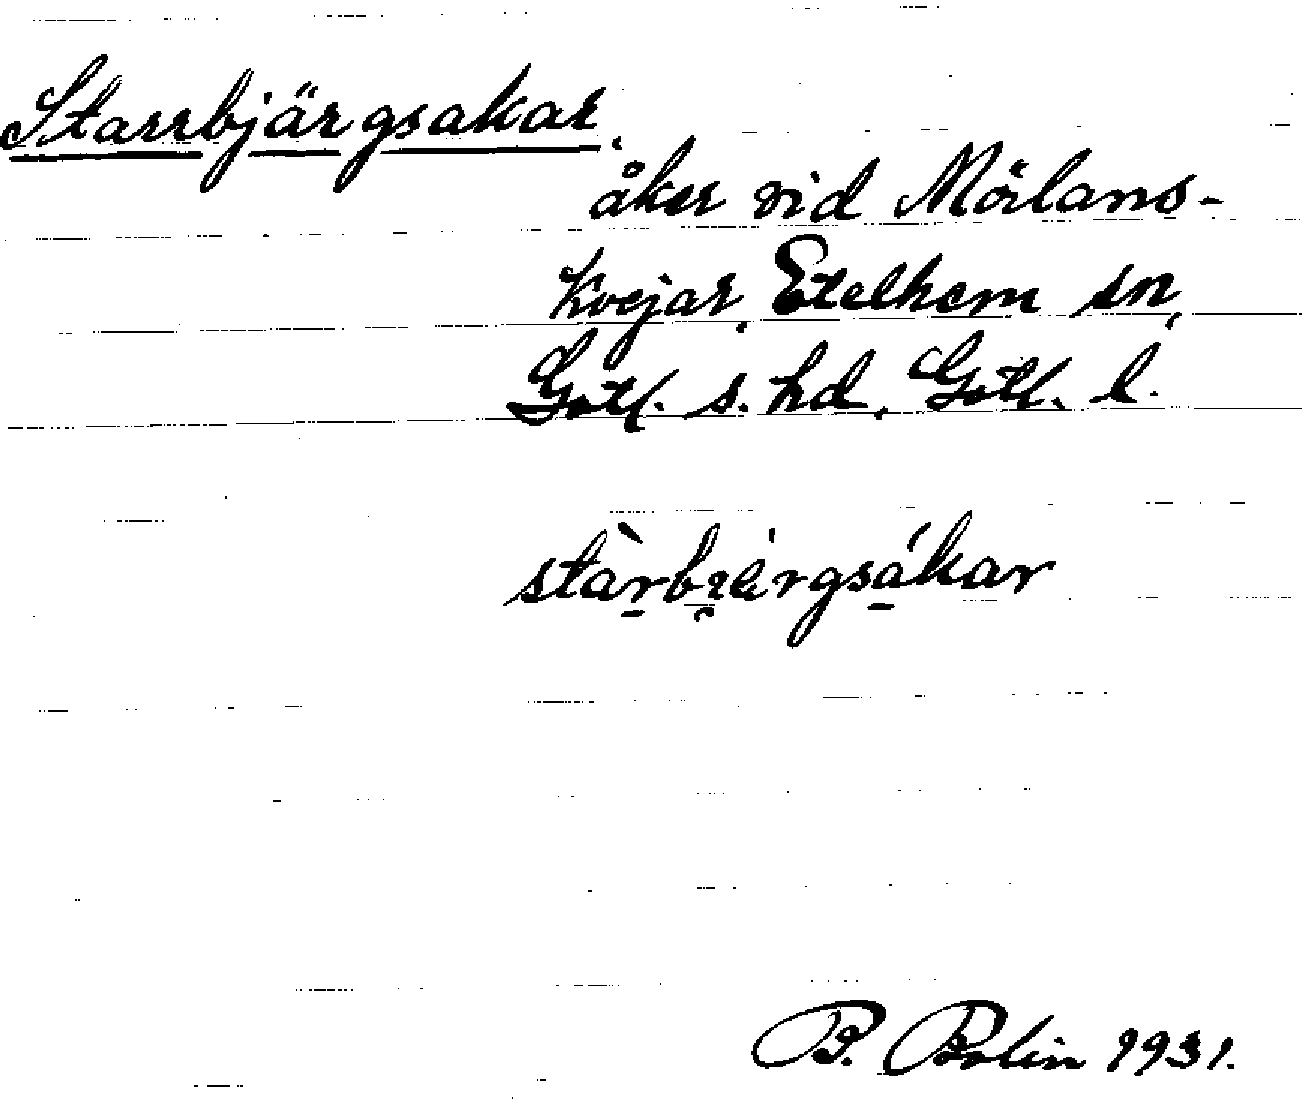 Starrbjärgsakar,
åker vid Mörlans-
kvejar, Etelhem sn,
Gotl. s. hd, Gotl. l.
stàrbi̯érgsákar
B. Bolin 1931.